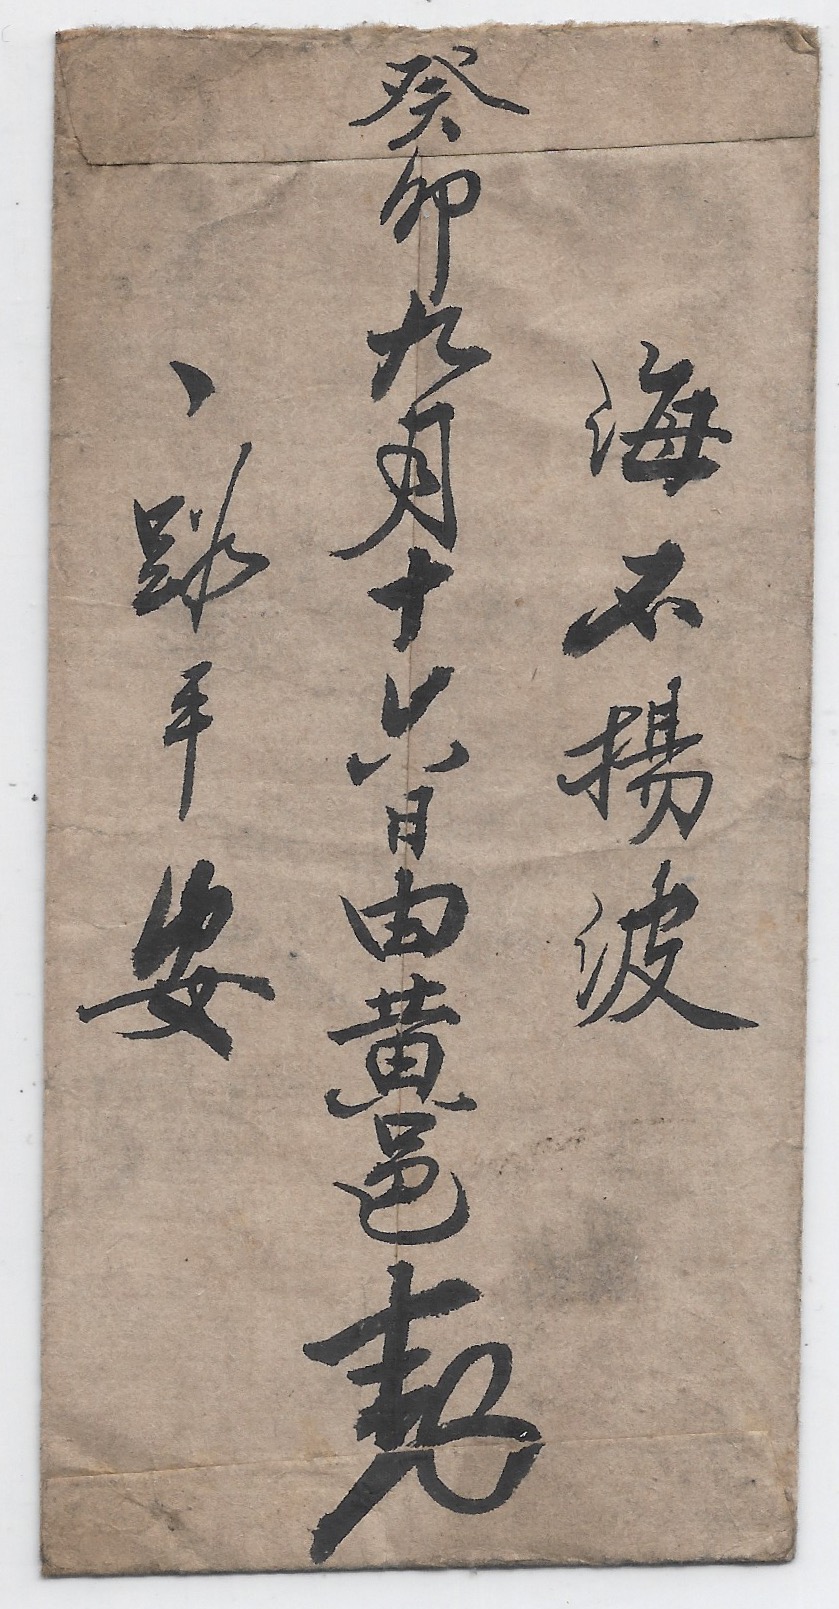 海不揚波
癸卯九月十六日由黄邑
一路平安